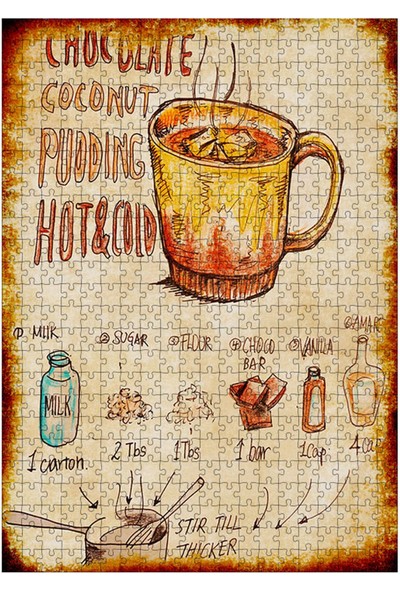 CHOCOLATE
COCONUT
PUDDING
HOT&COLD
① MILK
② SUGAR
③ FLOUR
④ CHOCO
BAR
⑤ VANILLA
⑥ AMARE
MILK
1 carton.
2 Tbs
1 Tbs
1 bar
1 Cap
4 Cap
STIR TILL
THICKER